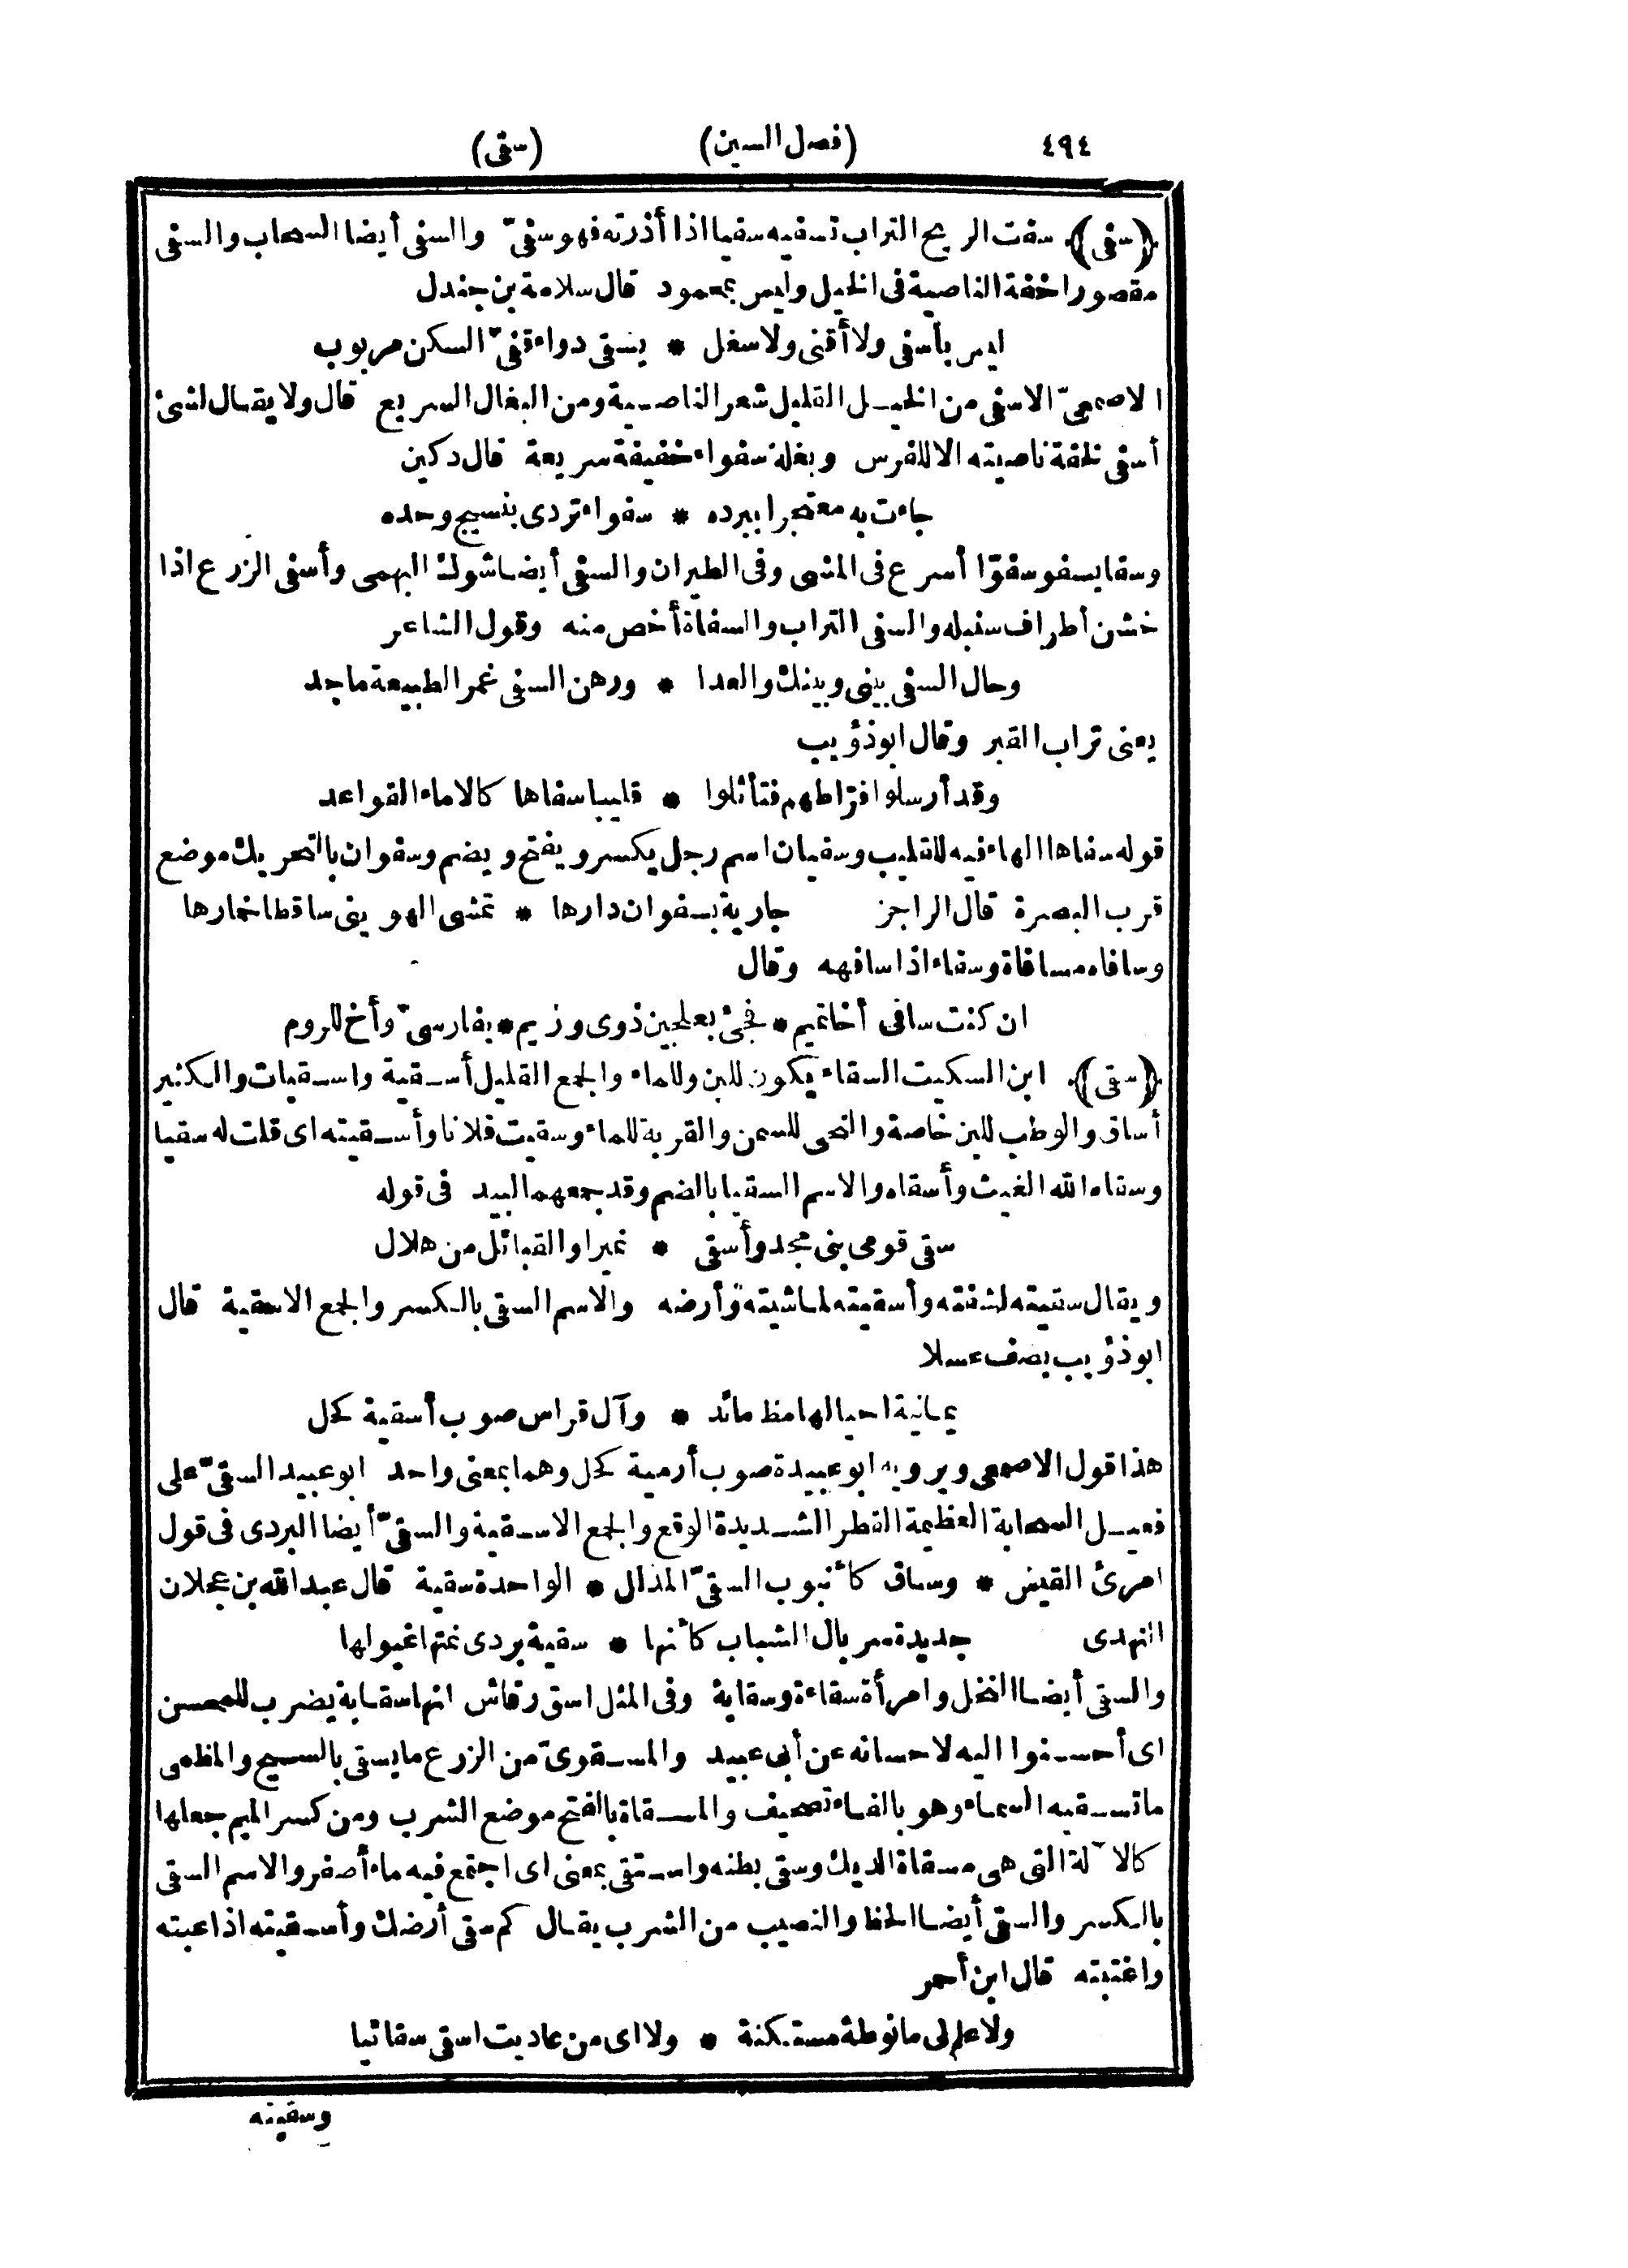 ٤٩٤ (فصل السين) (سقى)
﴿سفى﴾ سفت الريح التراب تسفيه سفيا اذا أذرته فهو سفىّ والسفى أيضا السحاب والسفى
مقصورا خفة الناصية فى الخيل وليس بمحمود قال سلامة بن جندل
ليس بأسفى ولا أقنى ولا سغل * يسقى دواء قفىّ السكن مربوب
الاصمعىّ الاسفى من الخيل القليل شعر الناصية ومن البغال السريع قال ولا يقال لشئ
أسفى لخفة ناصيته الا للفرس وبغلة سفواء خفيفة سريعة قال دكين
جاءت به معتجرا ببرده * سفواء تردى بنسيج وحده
وسفا يسفو سفوّا أسرع فى المشى وفى الطيران والسفى أيضا شوك البهمى وأسفى الزرع اذا
خشن أطراف سنبله والسفى التراب والسفاة أخص منه وقول الشاعر
وحال السفى بينى وبينك والعدا * ورهن السفى غمر الطبيعة ماجد
يعنى تراب القبر وقال ابو ذؤيب
وقد أرسلوا فرّاطهم فتأثلوا * قليبا سفاها كالاماء القواعد
قوله سفاها الهاء فيه للقليب وسفيان اسم رجل يكسر ويفتح ويضم وسفوان بالتحريك موضع
قرب البصرة قال الراجز جارية بسفوان دارها * تمشى الهوينى ساقطا خمارها
وسافاه مسافاة وسفاء اذا سافهه وقال
ان كنت سافى أخا تميم * فجئ بعلجين ذوى وزيم * بفارسىّ وأخ للروم
﴿سقى﴾ ابن السكيت السقاء يكون للبن وللماء والجمع القليل أسقية واسقيات والكثير
أساق والوطب للبن خاصة والنحى للسمن والقربة للماء وسقيت فلانا وأسقيته اى قلت له سقيا
وسقاه الله الغيث وأسقاه والاسم السقيا بالضم وقد جمعهما لبيد فى قوله
سقى قومى بنى مجد وأسقى * نميرا والقبائل من هلال
ويقال سقيته لشفته وأسقيته لماشيته وأرضه والاسم السقى بالكسر والجمع الاسقية قال
ابو ذؤيب يصف عسلا
يمانية احيا لها مظ مائد * وآل قراس صوب أسقية كحل
هذا قول الاصمعى ويرويه ابو عبيدة صوب أرمية كحل وهما بمعنى واحد ابو عبيد السقىّ على
فعيل السحابة العظيمة القطر الشديدة الوقع والجمع الاسقية والسقىّ أيضا البردى فى قول
امرئ القيس * وساق كأنبوب السقىّ المذلل * الواحدة سقية قال عبد الله بن عجلان
النهدى جديدة سربال الشباب كأنها * سقية بردى نمتها غيولها
والسقى أيضا النخل وامرأة سقاءة وسقاية وفى المثل اسق رقاش انها سقاية يضرب للمحسن
اى أحسنوا اليه لاحسانه عن أبى عبيد والمسقوىّ من الزرع ما يسقى بالسيح والمظمى
ما تسقيه السماء وهو بالفاء تصحيف والمسقاة بالفتح موضع الشرب ومن كسر الميم جعلها
كالآلة التى هى مسقاة الديك وسقى بطنه واستقى بمعنى اى اجتمع فيه ماء أصفر والاسم السقى
بالكسر والسقى أيضا الحظ والنصيب من الشرب يقال كم سقى أرضك وأسقيته اذا عبته
واغتبته قال ابن أحمر
ولا علم لى ما نوطة مستكنة * ولا اى من عاديت اسقى سقائيا
وسقيته